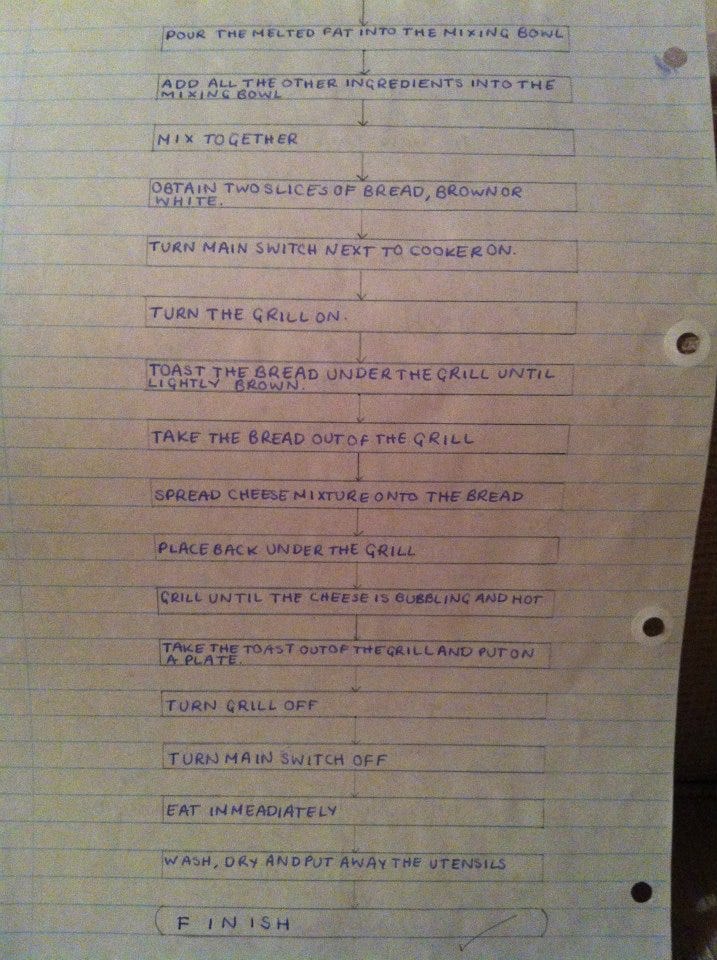 POUR THE MELTED FAT INTO THE MIXING BOWL
ADD ALL THE OTHER INGREDIENTS INTO THE
MIXING BOWL
MIX TOGETHER
OBTAIN TWO SLICES OF BREAD, BROWN OR
WHITE.
TURN MAIN SWITCH NEXT TO COOKER ON.
TURN THE GRILL ON.
TOAST THE BREAD UNDER THE GRILL UNTIL
LIGHTLY BROWN.
TAKE THE BREAD OUT OF THE GRILL
SPREAD CHEESE MIXTURE ONTO THE BREAD
PLACE BACK UNDER THE GRILL
GRILL UNTIL THE CHEESE IS BUBBLING AND HOT
TAKE THE TOAST OUT OF THE GRILL AND PUT ON
A PLATE.
TURN GRILL OFF
TURN MAIN SWITCH OFF
EAT IMMEADIATELY
WASH, DRY AND PUT AWAY THE UTENSILS
FINISH